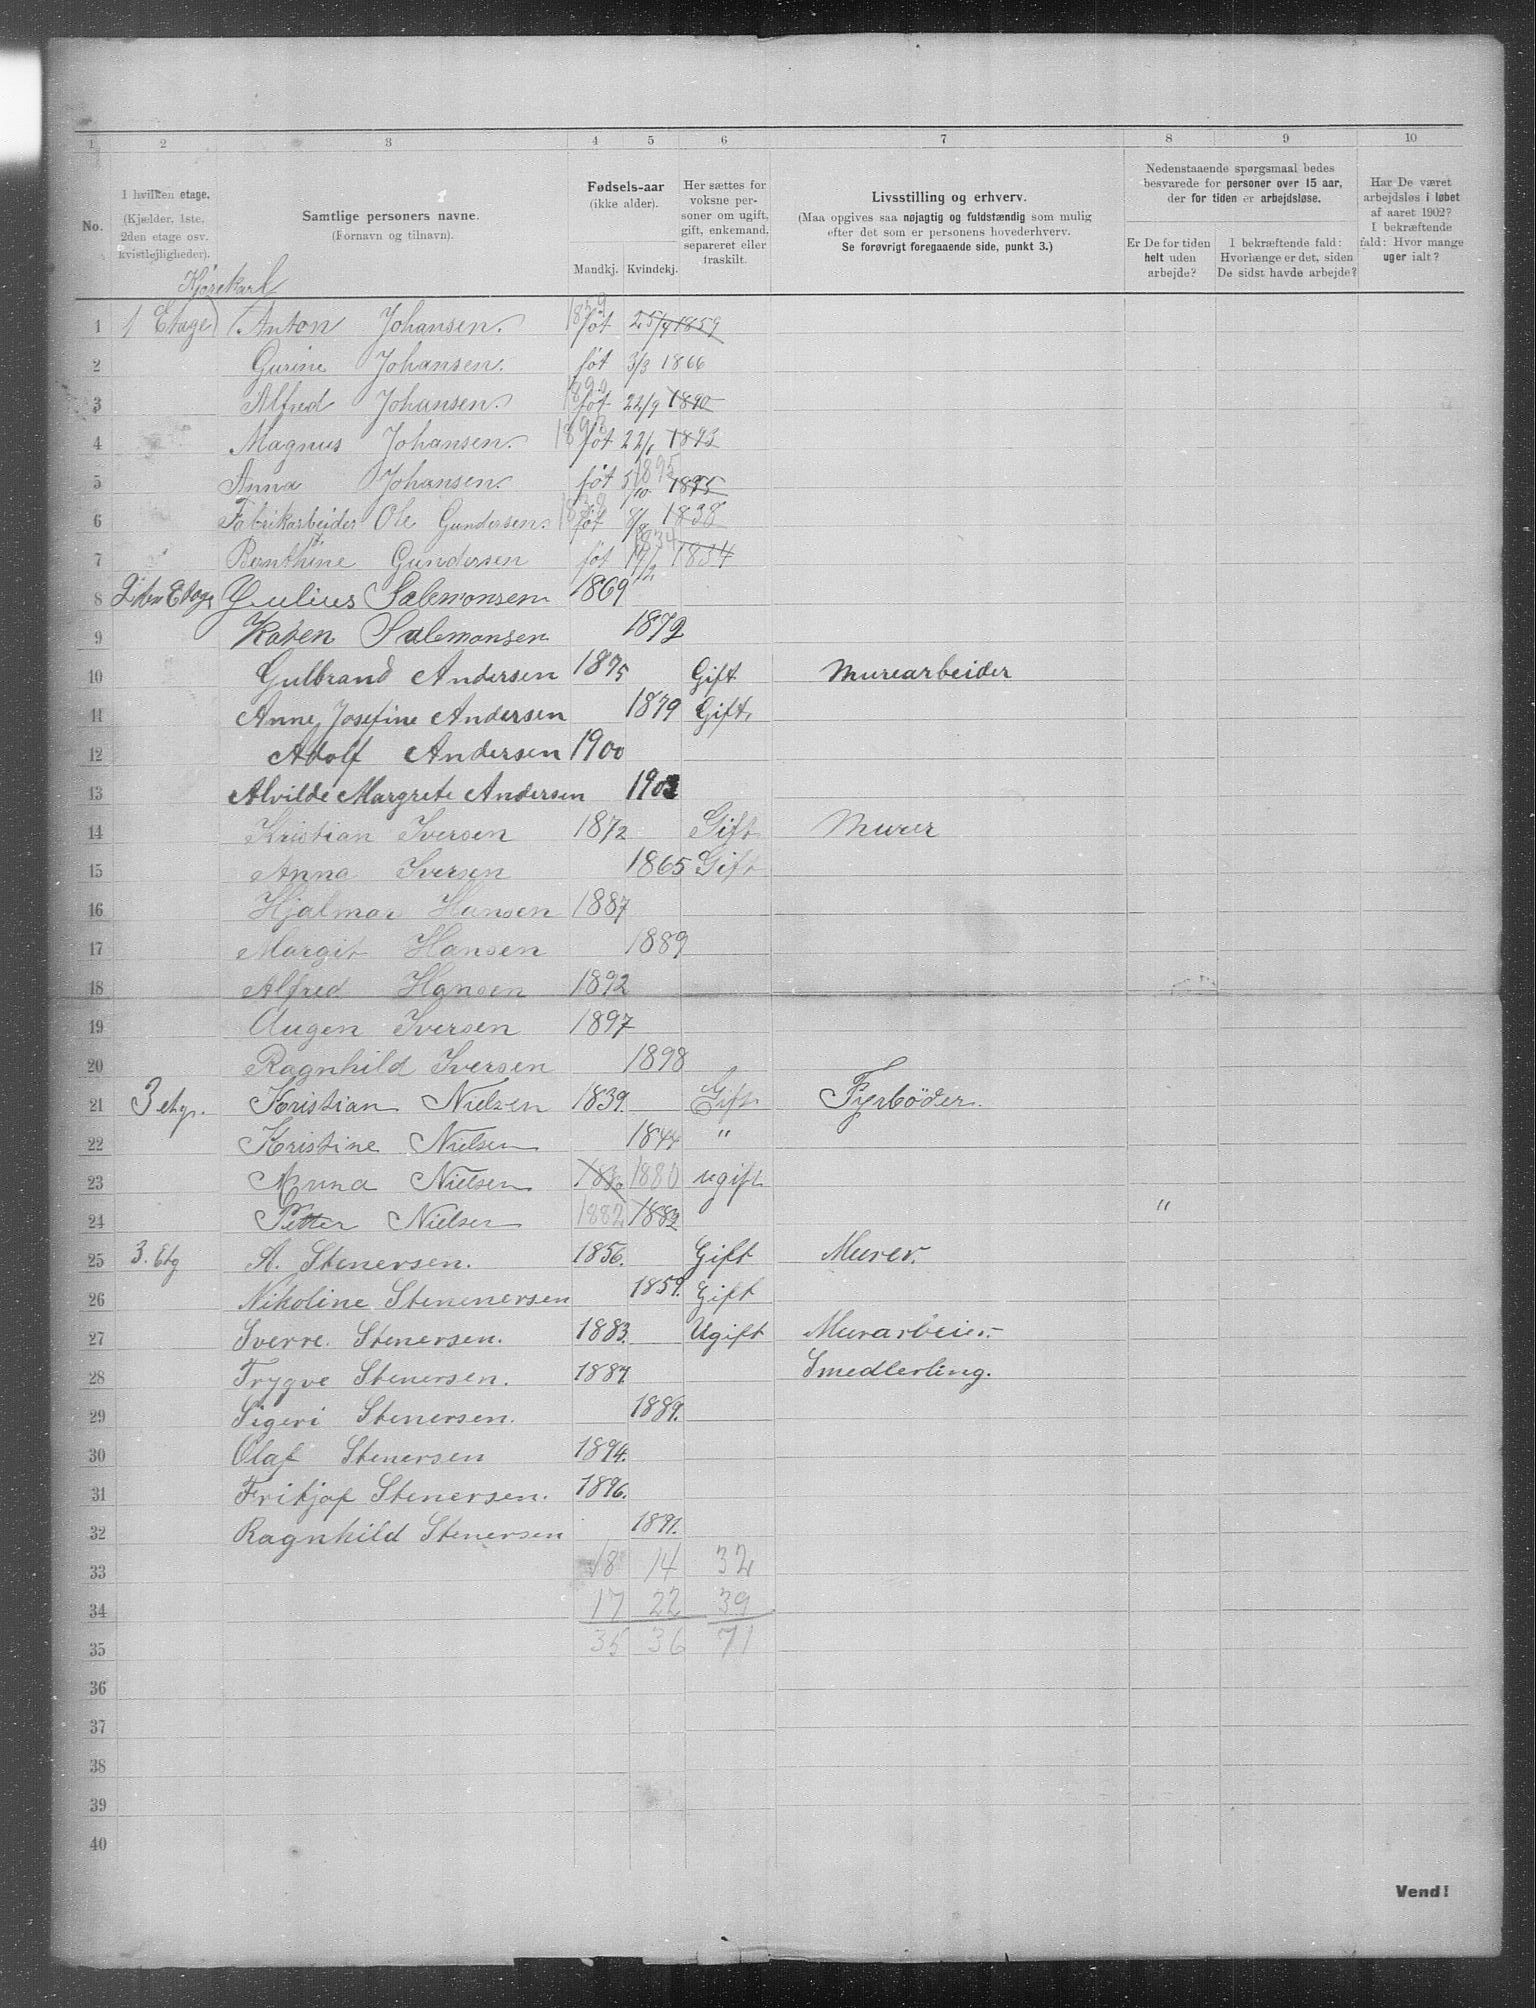 1 2 3 4 5 6 7 8 9 10
No.
I hvilken etage.
(Kjælder, 1ste,
2den etage osv.
kvistlejligheder).
Samtlige personers navne.
(Fornavn og tilnavn).
Fødsels-aar
(ikke alder).
Mandkj. Kvindekj.
Her sættes for
voksne per-
soner om ugift,
gift, enkemand,
separeret eller
fraskilt.
Livsstilling og erhverv.
(Maa opgives saa nøjagtig og fuldstændig som mulig
efter det som er personens hovederhverv.
Se forøvrigt foregaaende side, punkt 3.)
Nedenstaaende spørgsmaal bedes
besvarede for personer over 15 aar,
der for tiden er arbejdsløse.
Er De for tiden
helt uden
arbejde?
I bekræftende fald:
Hvorlænge er det, siden
De sidst havde arbejde?
Har De været
arbejdsløs i løbet
af aaret 1902?
I bekræftende
fald: Hvor mange
uger ialt?
Kjørekarl
1 1 Etage Anton Johansen. 1859 føt 25/4 1859
2 Gurine Johansen. føt 3/3 1866
3 Alfred Johansen. 1890 føt 22/9 1890
4 Magnus Johansen. 1893 føt 22/1 1893
5 Anna Johansen. føt 5/10 1895 1895
6 Fabrikarbeider Ole Gundersen. 1838 føt 8/9 1838
7 Bernthine Gundersen føt 19/2 1834 1834
8 2den Etage Julius Salemonsen 1869
9 Karen Salemonsen 1872
10 Gulbrand Andersen 1875 Gift Murearbeider
11 Anne Josefine Andersen 1879 Gift,
12 Adolf Andersen 1900
13 Alvilde Margrete Andersen 1902
14 Kristian Iversen 1872 Gift Murer
15 Anna Iversen 1865 Gift
16 Hjalmar Hansen 1887
17 Margit Hansen 1889
18 Alfred Hansen 1892
19 Augen Iversen 1897
20 Ragnhild Iversen 1898
21 3 etg. Kristian Nielsen 1839. Gift Fyrböder.
22 Kristine Nielsen 1844 "
23 Anna Nielsen 1880 1880 ugift
24 Petter Nielsen 1882 1882 "
25 3. Etg A. Stenersen. 1856. Gift Murer.
26 Nikoline Stenenersen 1859. Gift
27 Sverre. Stenersen. 1883. Ugift Murarbeier.
28 Trygve Stenersen. 1887. Smedlerling.
29 Sigeri Stenersen. 1889.
30 Olaf Stenersen 1894.
31 Fritjof Stenersen. 1896.
32 Ragnhild Stenersen 1891.
33 18 14 32
34 17 22 39
35 35 36 71
36
37
38
39
40
Vend!